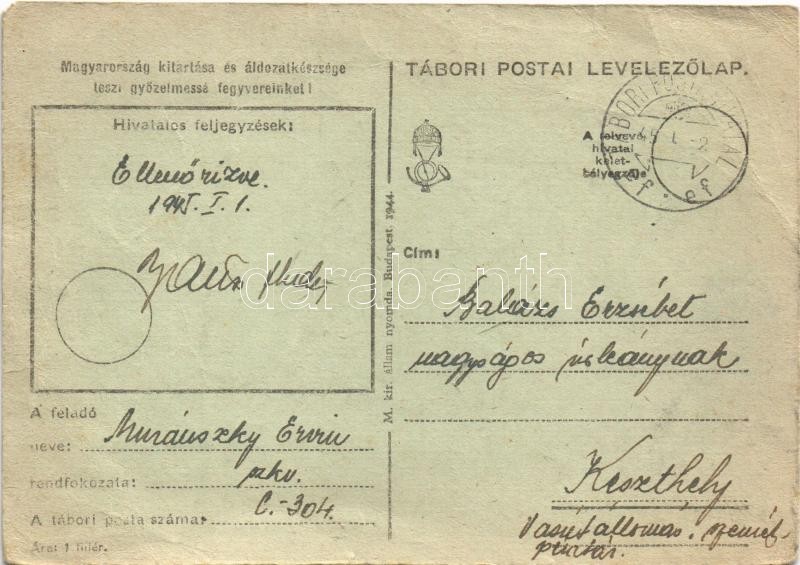 Magyarország kitartása és áldozatkészsége
teszi győzelmessé fegyvereinket!
Hivatalos feljegyzések:
Ellenőrizve.
1945. I. 1.
TÁBORI POSTAI LEVELEZŐLAP.
A felvevő
hivatal
kelet-
bélyegzője
45 I. 2
Cím:
Balázs Erzsébet
nagyságos
Keszthely
Vasútállomás.
M. kir. állam nyomda. Budapest 1944.
A feladó
neve: Muránszky Ervin
rendfokozata: zkv.
A tábori posta száma: C.-304.
Ára: 1 fillér.
darabanth